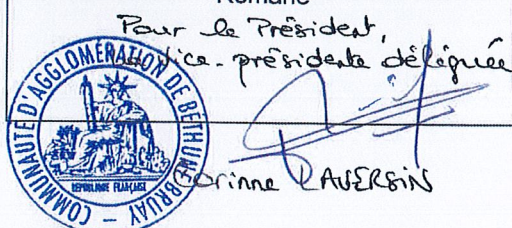 Romane
Pour le Président,
la vice-présidente déléguée
COMMUNAUTÉ D'AGGLOMÉRATION DE BÉTHUNE-BRUAY
RÉPUBLIQUE FRANÇAISE
Corinne LAVERSIN